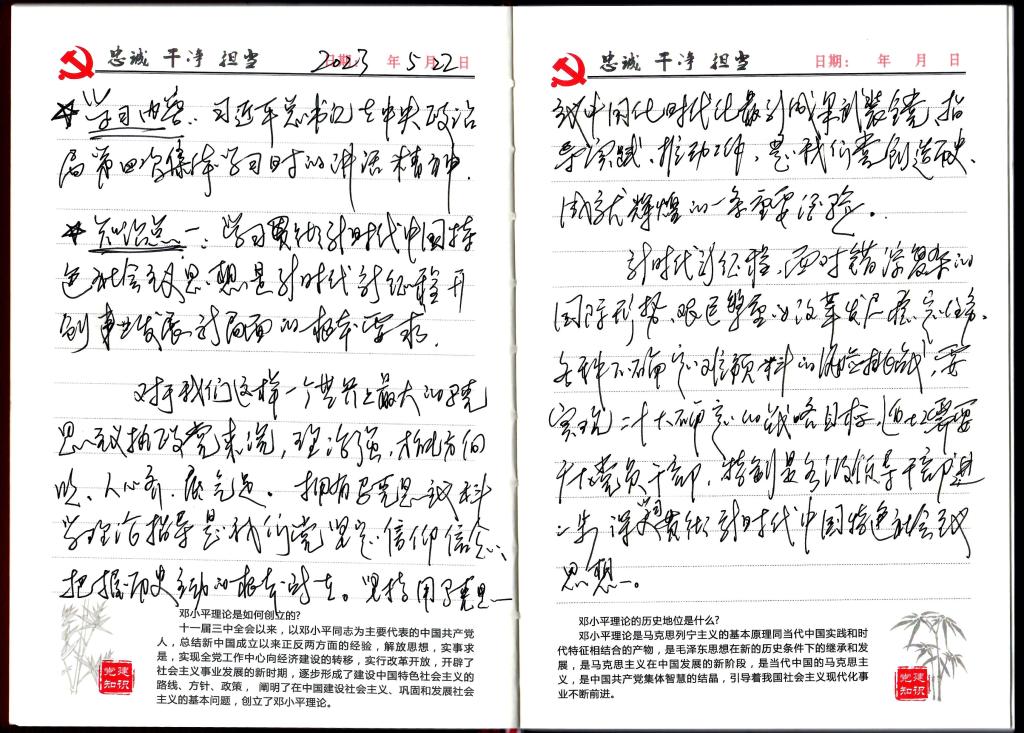 忠诚 干净 担当 日期: 2023年5月22日
☆学习内容:习近平总书记在中央政治
局第四次集体学习时的讲话精神.
☆知识点一:学习贯彻新时代中国特
色社会主义思想是新时代新征程开
创事业发展新局面的根本要求.
对于我们这样一个世界上最大的马克
思主义执政党来说,理论强,才能方向
明、人心齐、底气足。拥有马克思主义科
学理论指导是我们党坚定信仰信念、
把握历史主动的根本所在。坚持用马克思
邓小平理论是如何创立的?
十一届三中全会以来,以邓小平同志为主要代表的中国共产党
人,总结新中国成立以来正反两方面的经验,解放思想,实事求
是,实现全党工作中心向经济建设的转移,实行改革开放,开辟了
社会主义事业发展的新时期,逐步形成了建设中国特色社会主义的
路线、方针、政策, 阐明了在中国建设社会主义、巩固和发展社会
主义的基本问题,创立了邓小平理论。
党建
知识
忠诚 干净 担当 日期: 年 月 日
主义中国化时代化最新成果武装全党、指
导实践、推动工作,是我们党创造历史、
成就辉煌的一条重要经验。
新时代新征程,面对错综复杂的
国际形势、艰巨繁重的改革发展稳定任务、
各种不确定难预料的风险挑战,要
实现二十大确定的战略目标,迫切需要
广大党员干部,特别是各级领导干部进
一步深入学习贯彻新时代中国特色社会主义
思想。
邓小平理论的历史地位是什么?
邓小平理论是马克思列宁主义的基本原理同当代中国实践和时
代特征相结合的产物,是毛泽东思想在新的历史条件下的继承和发
展,是马克思主义在中国发展的新阶段,是当代中国的马克思主
义,是中国共产党集体智慧的结晶,引导着我国社会主义现代化事
业不断前进。
党建
知识